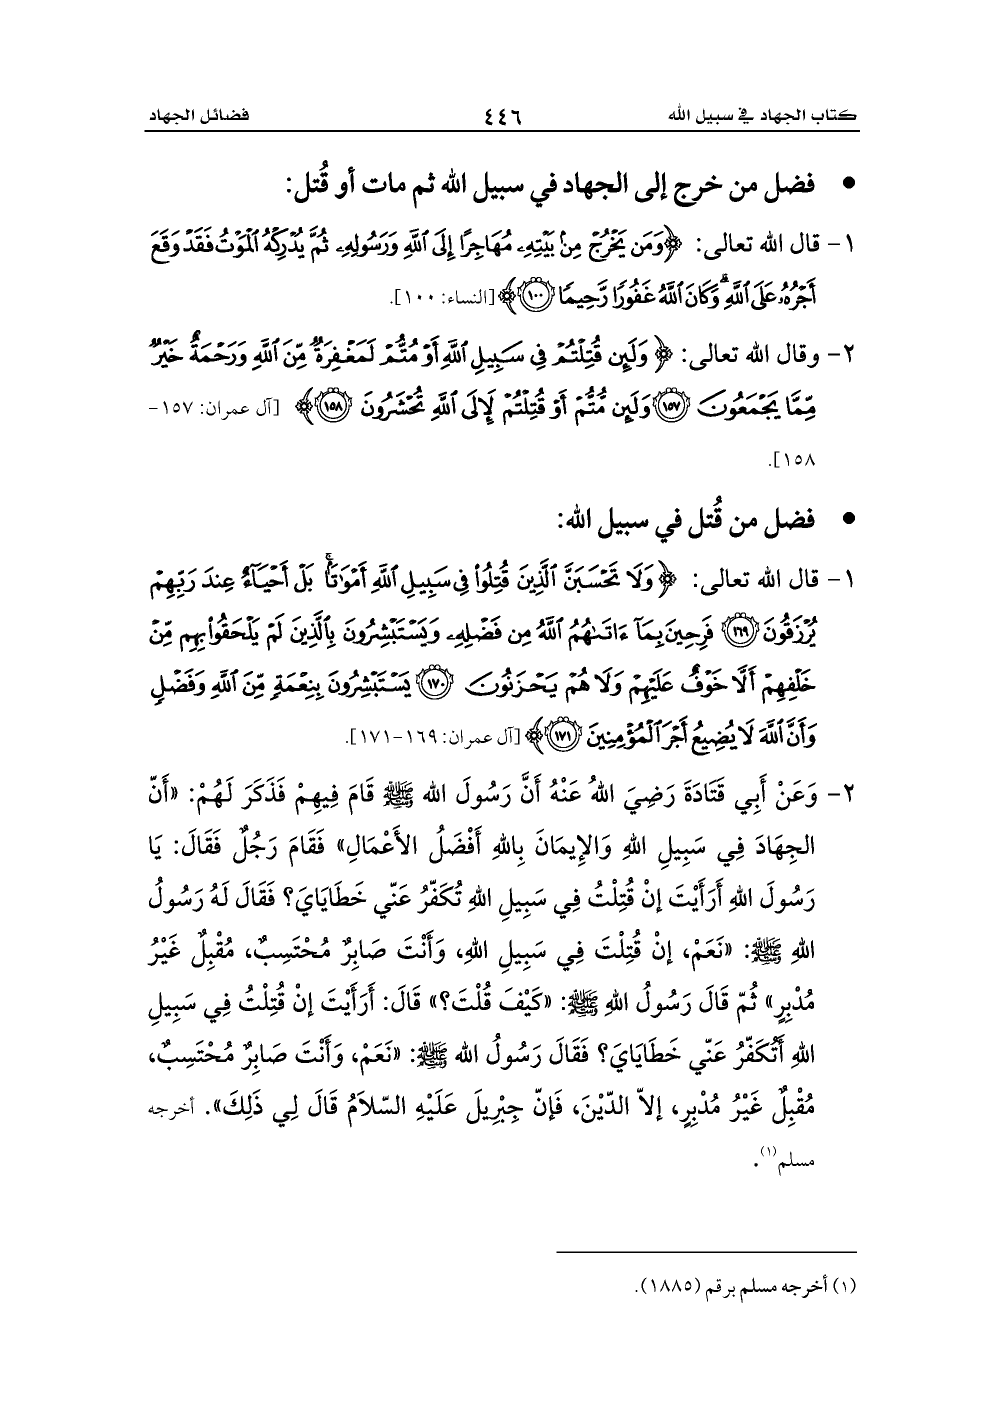 كتاب الجهاد في سبيل الله ٤٤٦ فضائل الجهاد
• فضل من خرج إلى الجهاد في سبيل الله ثم مات أو قُتل:
١- قال الله تعالى: ﴿وَمَن يَخْرُجْ مِنۢ بَيْتِهِۦ مُهَاجِرًا إِلَى ٱللَّهِ وَرَسُولِهِۦ ثُمَّ يُدْرِكْهُ ٱلْمَوْتُ فَقَدْ وَقَعَ
أَجْرُهُۥ عَلَى ٱللَّهِ ۗ وَكَانَ ٱللَّهُ غَفُورًا رَّحِيمًا ١٠٠﴾ [النساء: ١٠٠].
٢- وقال الله تعالى: ﴿وَلَئِن قُتِلْتُمْ فِى سَبِيلِ ٱللَّهِ أَوْ مُتُّمْ لَمَغْفِرَةٌ مِّنَ ٱللَّهِ وَرَحْمَةٌ خَيْرٌ
مِّمَّا يَجْمَعُونَ ١٥٧ وَلَئِن مُّتُّمْ أَوْ قُتِلْتُمْ لَإِلَى ٱللَّهِ تُحْشَرُونَ ١٥٨﴾ [آل عمران: ١٥٧-
١٥٨].
• فضل من قُتل في سبيل الله:
١- قال الله تعالى: ﴿وَلَا تَحْسَبَنَّ ٱلَّذِينَ قُتِلُوا۟ فِى سَبِيلِ ٱللَّهِ أَمْوَٰتًۢا ۚ بَلْ أَحْيَآءٌ عِندَ رَبِّهِمْ
يُرْزَقُونَ ١٦٩ فَرِحِينَ بِمَآ ءَاتَىٰهُمُ ٱللَّهُ مِن فَضْلِهِۦ وَيَسْتَبْشِرُونَ بِٱلَّذِينَ لَمْ يَلْحَقُوا۟ بِهِم مِّنْ
خَلْفِهِمْ أَلَّا خَوْفٌ عَلَيْهِمْ وَلَا هُمْ يَحْزَنُونَ ١٧٠ يَسْتَبْشِرُونَ بِنِعْمَةٍ مِّنَ ٱللَّهِ وَفَضْلٍ
وَأَنَّ ٱللَّهَ لَا يُضِيعُ أَجْرَ ٱلْمُؤْمِنِينَ ١٧١﴾ [آل عمران: ١٦٩-١٧١].
٢- وَعَنْ أَبِي قَتَادَةَ رَضِيَ اللهُ عَنْهُ أَنَّ رَسُولَ الله ﷺ قَامَ فِيهِمْ فَذَكَرَ لَهُمْ: «أَنّ
الجِهَادَ فِي سَبِيلِ اللهِ وَالإِيمَانَ بِاللهِ أَفْضَلُ الأَعْمَالِ» فَقَامَ رَجُلٌ فَقَالَ: يَا
رَسُولَ اللهِ أَرَأَيْتَ إنْ قُتِلْتُ فِي سَبِيلِ اللهِ تُكَفّرُ عَنّي خَطَايَايَ؟ فَقَالَ لَهُ رَسُولُ
اللهِ ﷺ: «نَعَمْ، إنْ قُتِلْتَ فِي سَبِيلِ اللهِ، وَأَنْتَ صَابِرٌ مُحْتَسِبٌ، مُقْبِلٌ غَيْرُ
مُدْبِرٍ» ثُمّ قَالَ رَسُولُ اللهِ ﷺ: «كَيْفَ قُلْتَ؟» قَالَ: أَرَأَيْتَ إنْ قُتِلْتُ فِي سَبِيلِ
اللهِ أَتُكَفّرُ عَنّي خَطَايَايَ؟ فَقَالَ رَسُولُ الله ﷺ: «نَعَمْ، وَأَنْتَ صَابِرٌ مُحْتَسِبٌ،
مُقْبِلٌ غَيْرُ مُدْبِرٍ، إلاّ الدّيْنَ، فَإنّ جِبْرِيلَ عَلَيْهِ السّلاَمُ قَالَ لِي ذَلِكَ». أخرجه
مسلم(١).
(١) أخرجه مسلم برقم (١٨٨٥).